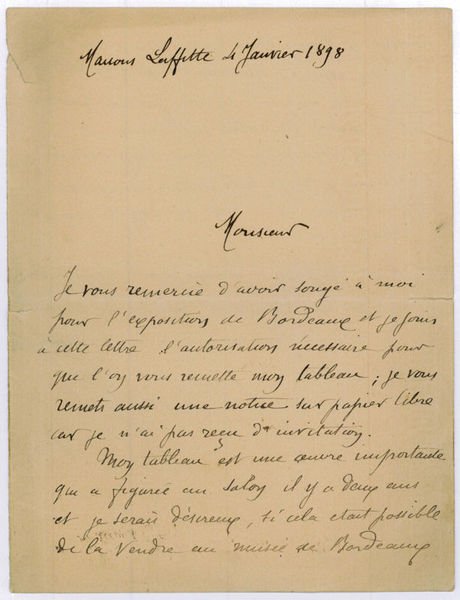 Maisons Laffitte 4 Janvier 1898
Monsieur
Je vous remercie d'avoir songé à moi
pour l'exposition de Bordeaux et je joins
à cette lettre l'autorisation nécessaire pour
que l'on vous remette mon tableau ; je vous
remets aussi une notice sur papier libre
car je n'ai pas reçu d'invitation.
Mon tableau est une œuvre importante
qui a figuré au salon il y a deux ans
et je serais désireux, si cela était possible
de la vendre au musée de Bordeaux